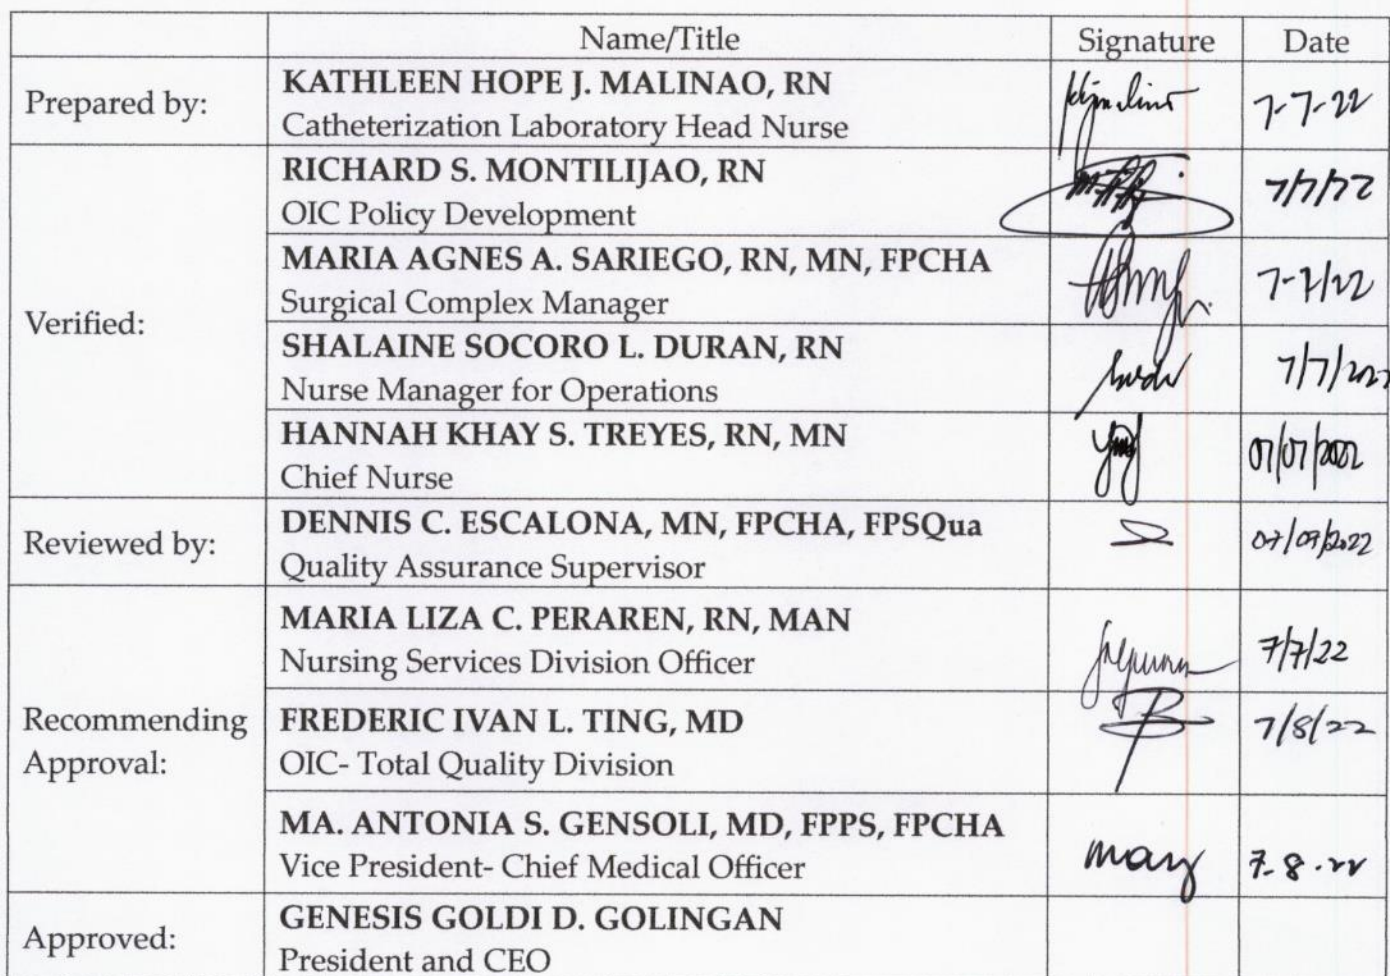 Name/Title Signature Date
Prepared by: KATHLEEN HOPE J. MALINAO, RN
Catheterization Laboratory Head Nurse
7-7-22
RICHARD S. MONTILIJAO, RN
OIC Policy Development
7/7/22
Verified:
MARIA AGNES A. SARIEGO, RN, MN, FPCHA
Surgical Complex Manager
7-7/22
SHALAINE SOCORO L. DURAN, RN
Nurse Manager for Operations
7/7/2022
HANNAH KHAY S. TREYES, RN, MN
Chief Nurse
07/07/2022
Reviewed by: DENNIS C. ESCALONA, MN, FPCHA, FPSQua
Quality Assurance Supervisor
07/07/2022
MARIA LIZA C. PERAREN, RN, MAN
Nursing Services Division Officer
7/7/22
Recommending
Approval:
FREDERIC IVAN L. TING, MD
OIC- Total Quality Division
7/8/22
MA. ANTONIA S. GENSOLI, MD, FPPS, FPCHA
Vice President- Chief Medical Officer
7-8-22
Approved: GENESIS GOLDI D. GOLINGAN
President and CEO